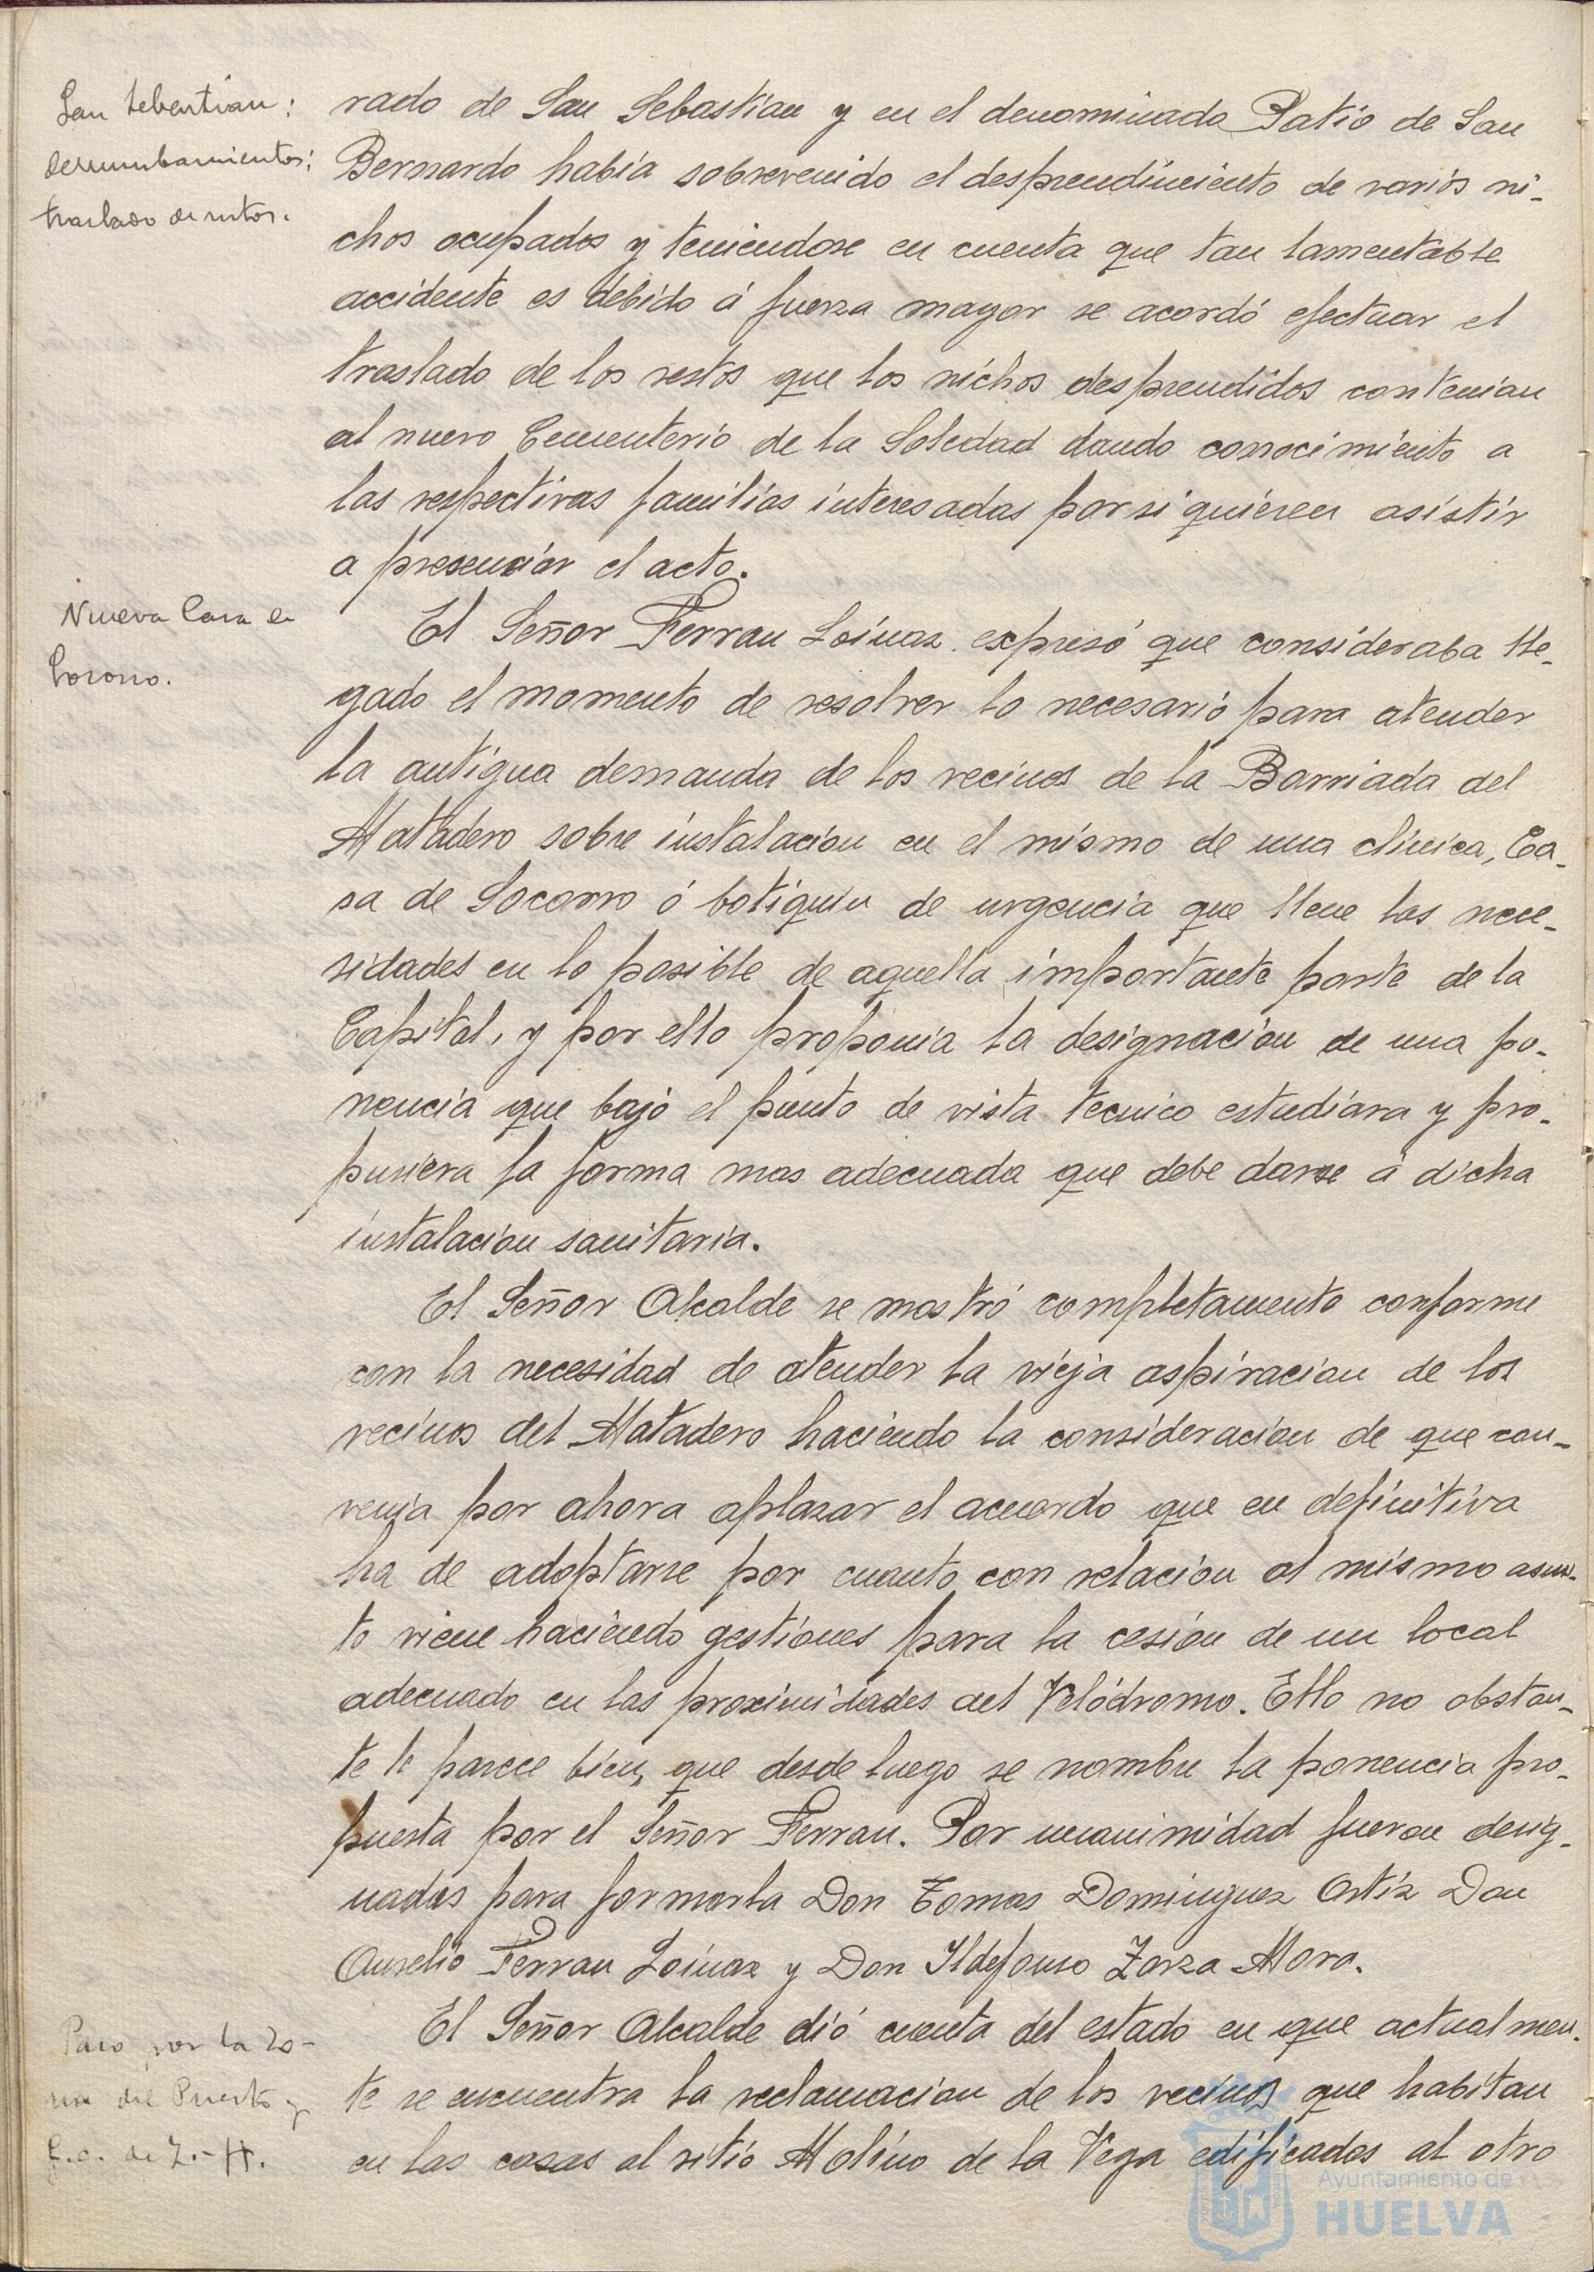 San Sebastian:
derrumbamientos:
traslado de restos.
rado de San Sebastian y en el denominado Patio de San
Bernardo habia sobrevenido el desprendimiento de varios ni-
chos ocupados y teniendose en cuenta que tan lamentable
accidente es debido á fuerza mayor se acordó efectuar el
traslado de los restos que los nichos desprendidos contenian
al nuevo Cementerio de la Soledad dando conocimiento a
las respectivas familias interesadas por si quieren asistir
a presenciar el acto.
Nueva Casa de
Socorro.
El Señor Ferran Loinaz expresó que consideraba lle-
gado el momento de resolver lo necesario para atender
la antigua demanda de los vecinos de la Barriada del
Matadero sobre instalacion en el mismo de una clinica, Ca-
sa de Socorro ó botiquin de urgencia que llene las nece-
sidades en lo posible de aquella importante parte de la
Capital, y por ello proponia la designacion de una po-
nencia que bajo el punto de vista tecnico estudiara y pro-
pusiera la forma mas adecuada que debe darse á dicha
instalacion sanitaria.
El Señor Alcalde se mostró completamente conforme
con la necesidad de atender la vieja aspiracion de los
vecinos del Matadero haciendo la consideracion de que con-
venia por ahora aplazar el acuerdo que en definitiva
ha de adoptarse por cuanto con relacion al mismo asun-
to viene haciendo gestiones para la cesión de un local
adecuado en las proximidades del Velódromo. Ello no obstan-
te le parece bien, que desde luego se nombre la ponencia pro-
puesta por el Señor Ferran. Por unanimidad fueron desig-
nados para formarla Don Tomas Dominguez Ortiz Don
Aurelio Ferran Loinaz y Don Ildefonso Zarza Mora.
Paso por la zo-
na del Puerto y
f.c. de Z.-H.
El Señor Alcalde dió cuenta del estado en que actualmen-
te se encuentra la reclamacion de los vecinos que habitan
en las casas al sitio Molino de la Vega edificadas al otro
Ayuntamiento de
HUELVA